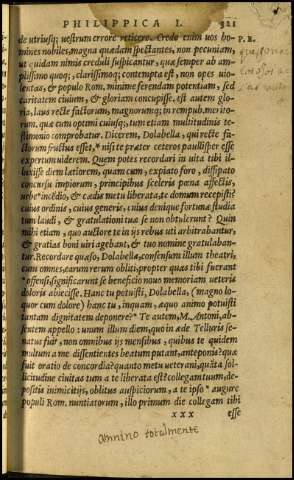 PHILIPPICA I. 321
de utriusq; uestrum errore reticere. Credo enim uos ho-
mines nobiles, magna quædam spectantes, non pecuniam,
ut quidam nimis creduli suspicantur, quæ semper ab am-
plissimo quoq;, clarissimoq; contempta est, non opes uio-
lentas, & populo Rom. minime ferendam potentiam, sed
caritatem ciuium, & gloriam concupisse. est autem glo-
ria, laus recte factorum, magnorumq; in rempub. merito-
rum. quæ cum optimi cuiusq;, tum etiam multitudinis te-
stimonio comprobatur. Dicerem, Dolabella, qui recte fa-
ctorum fructus esset, * nisi te præter ceteros paullisper esse
expertum uiderem. Quem potes recordari in uita tibi il-
luxisse diem lætiorem, quam cum, expiato foro, dissipato
concursu impiorum, principibus sceleris pœna affectis,
urbe * incedio, & cædis metu liberata, te domum recepisti?
cuius ordinis, cuius generis, cuius denique fortunæ studia
tum laudi, & gratulationi tuæ se non obtulerunt? Quin
mihi etiam, quo auctore te in ijs rebus uti arbitrabantur,
& gratias boni uiri agebant, & tuo nomine gratulaban-
tur. Recordare quæso, Dolabella, consensum illum theatri,
cum omnes, earum rerum obliti, propter quas tibi fuerant
* offensi, significarunt se beneficio nouo memoriam ueteris
doloris abiecisse. Hanc tu potuisti, Dolabella, (magno lo-
quor cum dolore) hanc tu, inquam, æquo animo potuisti
tantam dignitatem deponere? * Te autem, M. Antoni, ab-
sentem appello: unum illum diem, quo in æde Telluris se-
natus fuit, non omnibus ijs mensibus, quibus te quidem
multum a me dissentientes beatum putant, anteponis? quæ
fuit oratio de concordia? quanto metu ueterani, quāta sol-
licitudine ciuitas tum a te liberata est? collegam tuum, de-
positis inimicitijs, oblitus auspiciorum, a te ipso * augure
populi Rom. nuntiatorum, illo primum die collegam tibi
xxx esse
P. R.
omnino totalmente